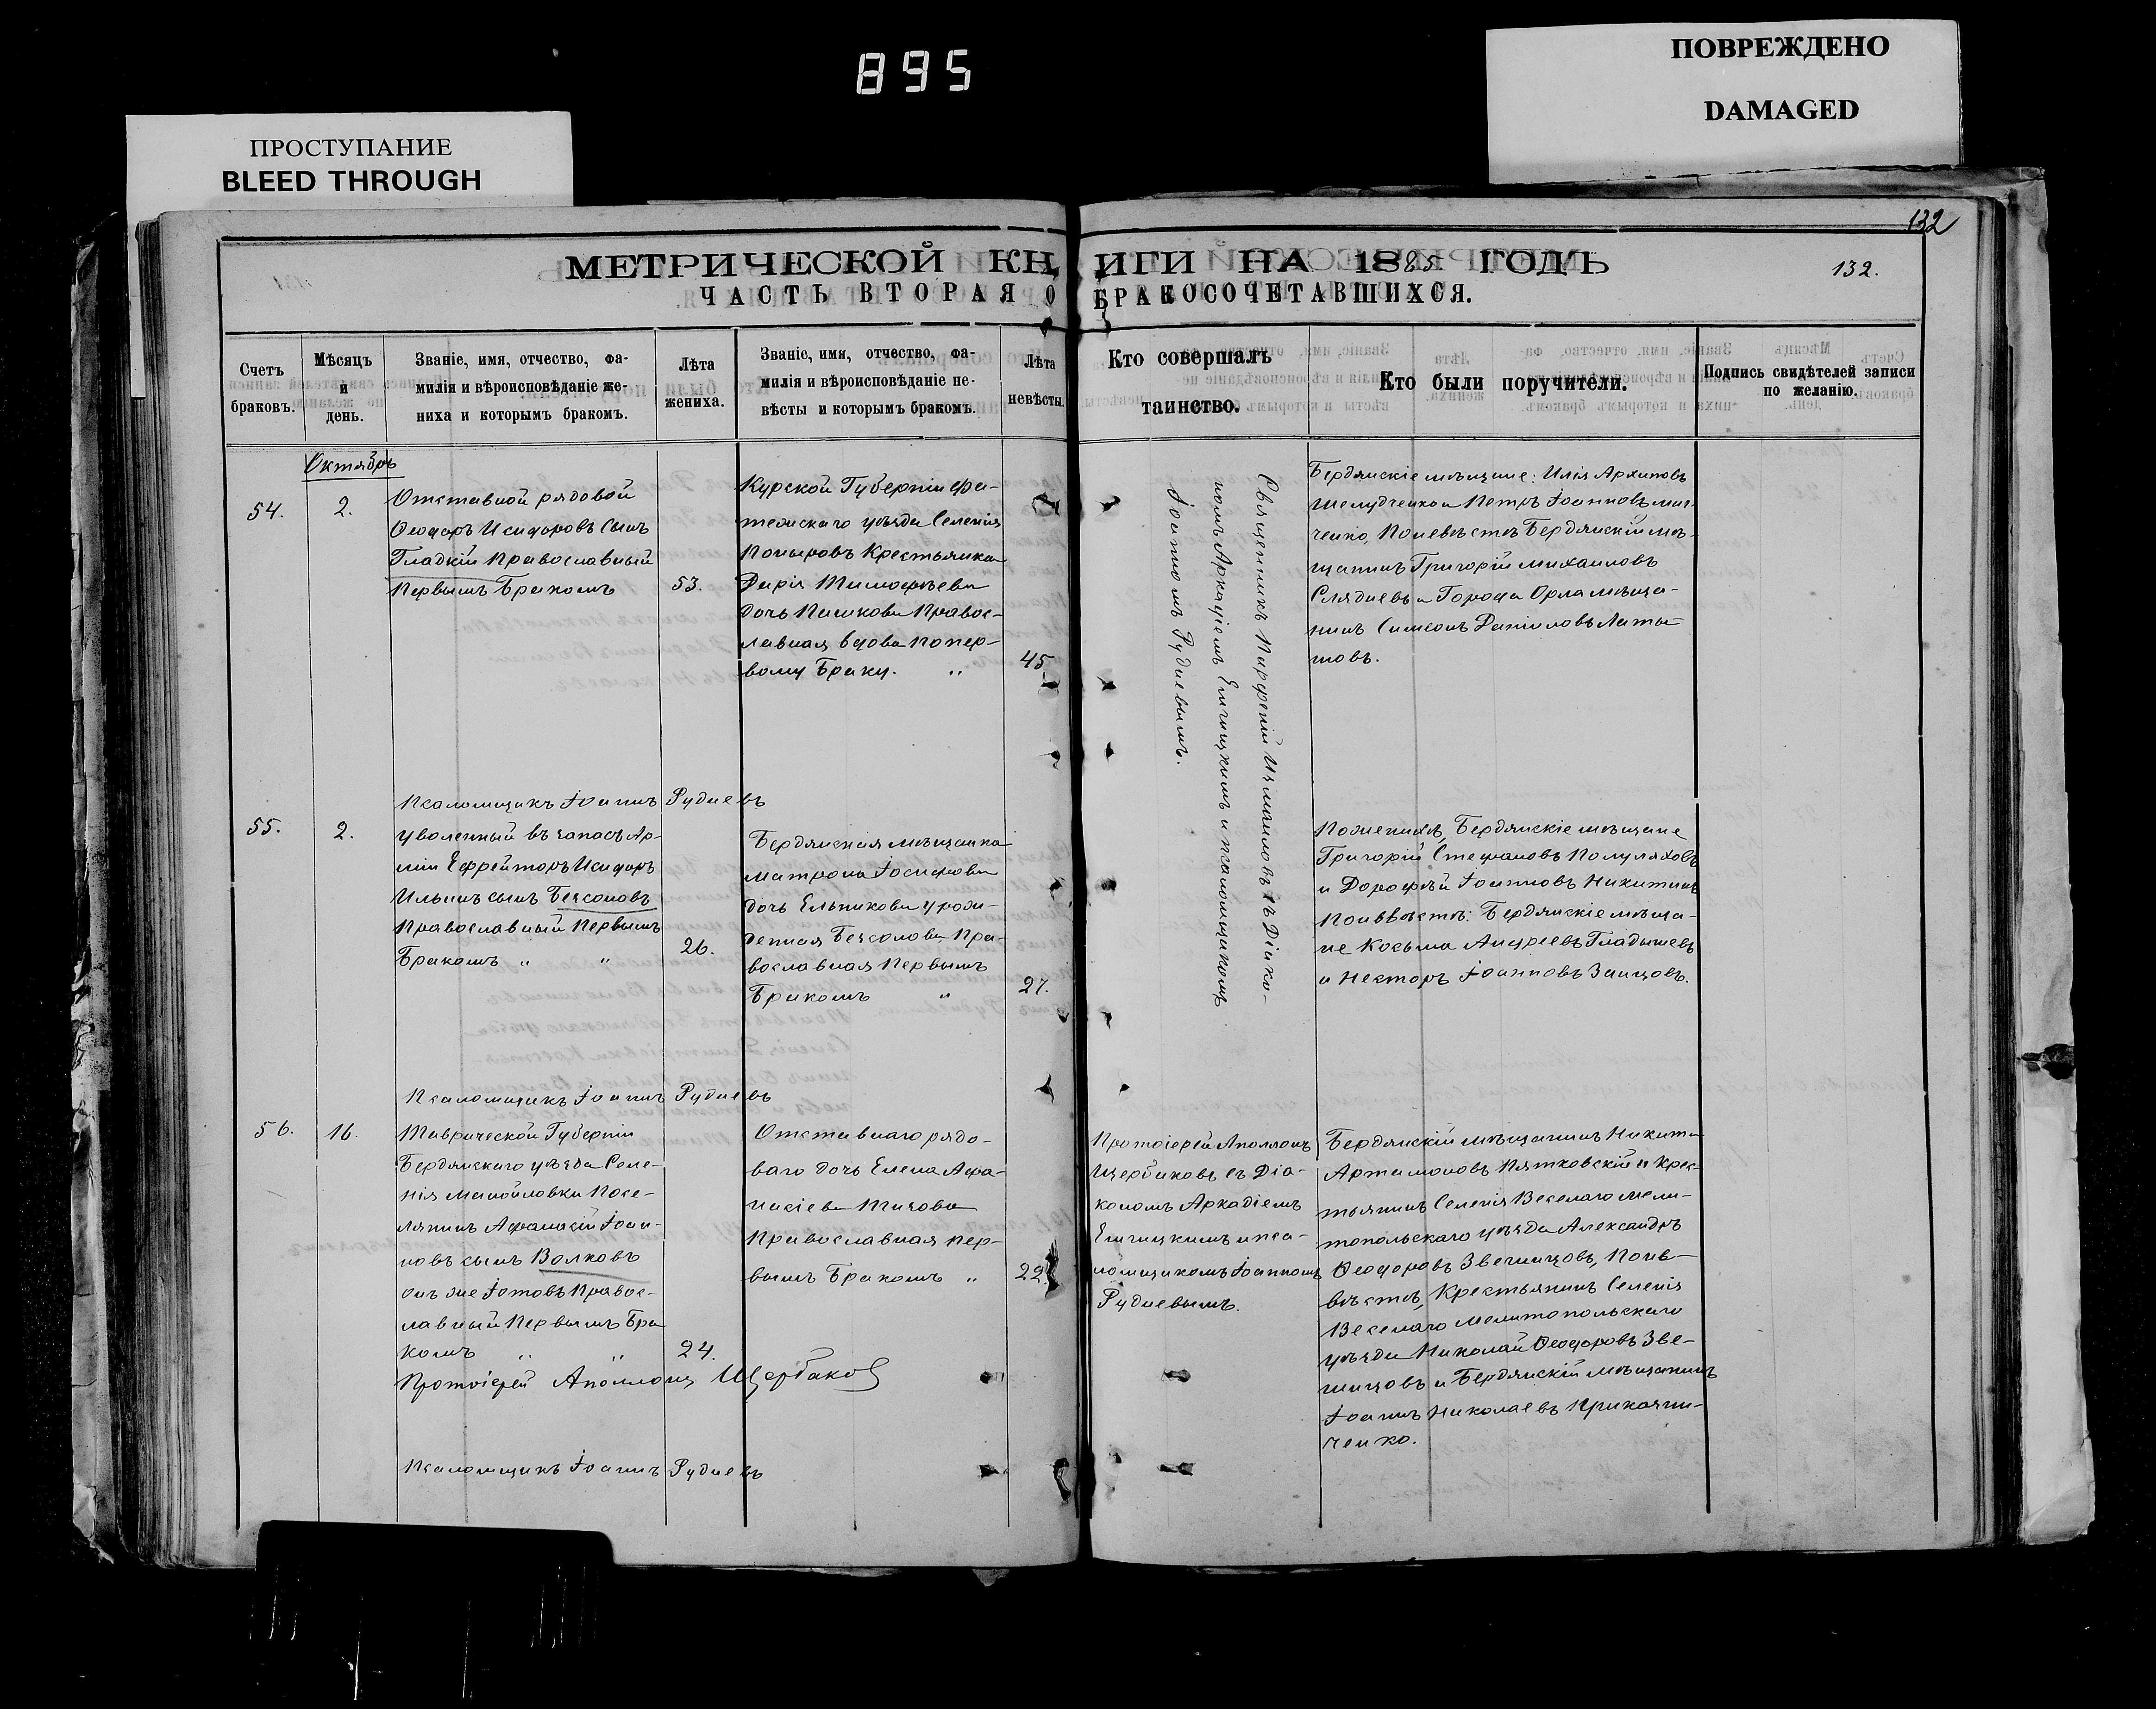 895
ПОВРЕЖДЕНО
DAMAGED
ПРОСТУПАНИЕ
BLEED THROUGH
132
МЕТРИЧЕСКОЙ КНИГИ НА 1885 ГОДЪ
132.
ЧАСТЬ ВТОРАЯ О БРАКОСОЧЕТАВШИХСЯ.
Счетъ
браковъ.
Мѣсяцъ
и
день.
Званіе, имя, отчество, фа-
милія и вѣроисповѣданіе же-
ниха и которымъ бракомъ.
Лѣта
жениха.
Званіе, имя, отчество, фа-
милія и вѣроисповѣданіе не-
вѣсты и которымъ бракомъ.
Лѣта
невѣсты.
Кто совершалъ
таинство.
Кто были поручители.
Подпись свидѣтелей записи
по желанію.
Октябрь
54.
2.
Отставной рядовой
Ѳеодоръ Исидоровъ сынъ
Гладкій Православный
Первымъ Бракомъ
53.
Курской Губерніи Фа-
тежскаго уѣзда Селенія
Поныровъ Крестьянка
Дарія Тимофѣева
дочь Пашкова Правос-
лавная вдова попер-
вому Браку. "
45.
Священникъ Парфеній Измаиловъ съ Діако-
номъ Аркадіемъ Елигицкимъ и псаломщикомъ
Іоанномъ Рудневымъ.
Бердянскіе мѣщане: Илія Архиповъ
Шелудченко и Петръ Іоанновъ
ченко, Поневѣстѣ Бердянскій мѣ-
щанинъ Григорій Михаиловъ
и Города Орла мѣща-
нинъ Симеонъ Даніиловъ Латы-
шовъ.
Псаломщикъ Іоаннъ Рудневъ
55.
2.
Уволенный въ запасъ Ар-
міи Ефрейторъ Исидоръ
Ильинъ сынъ
Православный Первымъ
Бракомъ " "
26.
Бердянская мѣщанка
Матрона Іосифова
дочь Ельникова урож-
денная Пра-
вославная Первымъ
Бракомъ "
27.
Поженихѣ, Бердянскіе мѣщане
Григорій Стефановъ Полуляховъ
и Дорофѣй Іоанновъ Никитинъ
Поневѣстѣ: Бердянскіе мѣща-
не Косьма Андреевъ Гладышевъ
и Несторъ Іоанновъ Заицовъ.
Псаломщикъ Іоаннъ Рудневъ
56.
16.
Таврической Губерніи
Бердянскаго уѣзда Селе-
нія Мануйловки Посе-
лянинъ Афанасій Іоан-
новъ сынъ Волковъ
онъ же Іотовъ Правос-
лавный Первымъ Бра
комъ " "
24.
Отставнаго рядо-
ваго дочь Елена Афа-
насіева Титова
Православная пер-
вымъ Бракомъ "
22.
Протоіерей Аполлонъ
Щербаковъ съ Діа-
кономъ Аркадіемъ
Елигицкимъ и пса-
ломщикомъ Іоанномъ
Рудневымъ.
Бердянскій мѣщанинъ Никита
Артамоновъ Пятковскій и Крес-
тьянинъ Селенія Веселаго Мели-
топольскаго уѣзда Александръ
Ѳеодоровъ Звегинцовъ, Поне-
вѣстѣ, Крестьянинъ Селенія
Веселаго Мелитопольскаго
уѣзда Николай Ѳеодоровъ Зве-
гинцовъ и Бердянскій мѣщанинъ
Іоаннъ Николаевъ
ченко.
Протоіерей Аполлонъ Щербаковъ
Псаломщикъ Іоаннъ Рудневъ